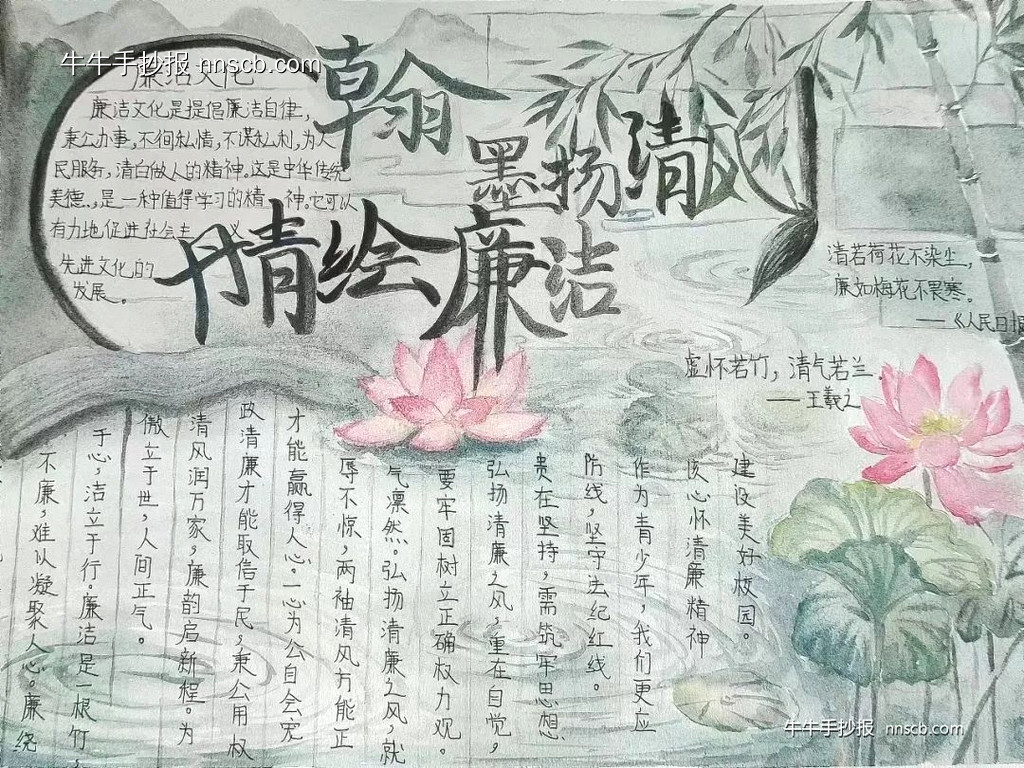 牛牛手抄报 nnscb.com
廉洁文化
廉洁文化是提倡廉洁自律,
秉公办事,不徇私情,不谋私利,为人
民服务,清白做人的精神。这是中华传统
美德.,是一种值得学习的精 神。它可以
有力地促进社会主 义
先进文化的
发展。
翰
墨扬清风
丹情绘廉洁
清若荷花不染尘,
廉如梅花不畏寒。
——《人民日报
虚怀若竹,清气若兰
——王羲之
不廉,难以凝聚人心。廉绕
于心,洁立于行。廉洁是一根竹,
傲立于世,人间正气。
清风润万家,廉韵启新程。为
政清廉才能取信于民,秉公用权
才能赢得人心。一心为公自会宠
辱不惊,两袖清风方能正
气凛然。弘扬清廉之风,就
要牢固树立正确权力观。
弘扬清廉之风,重在自觉,
贵在坚持,需筑牢思想
防线,坚守法纪红线。
作为青少年,我们更应
该心怀清廉精神
建设美好校园。
牛牛手抄报 nnscb.com